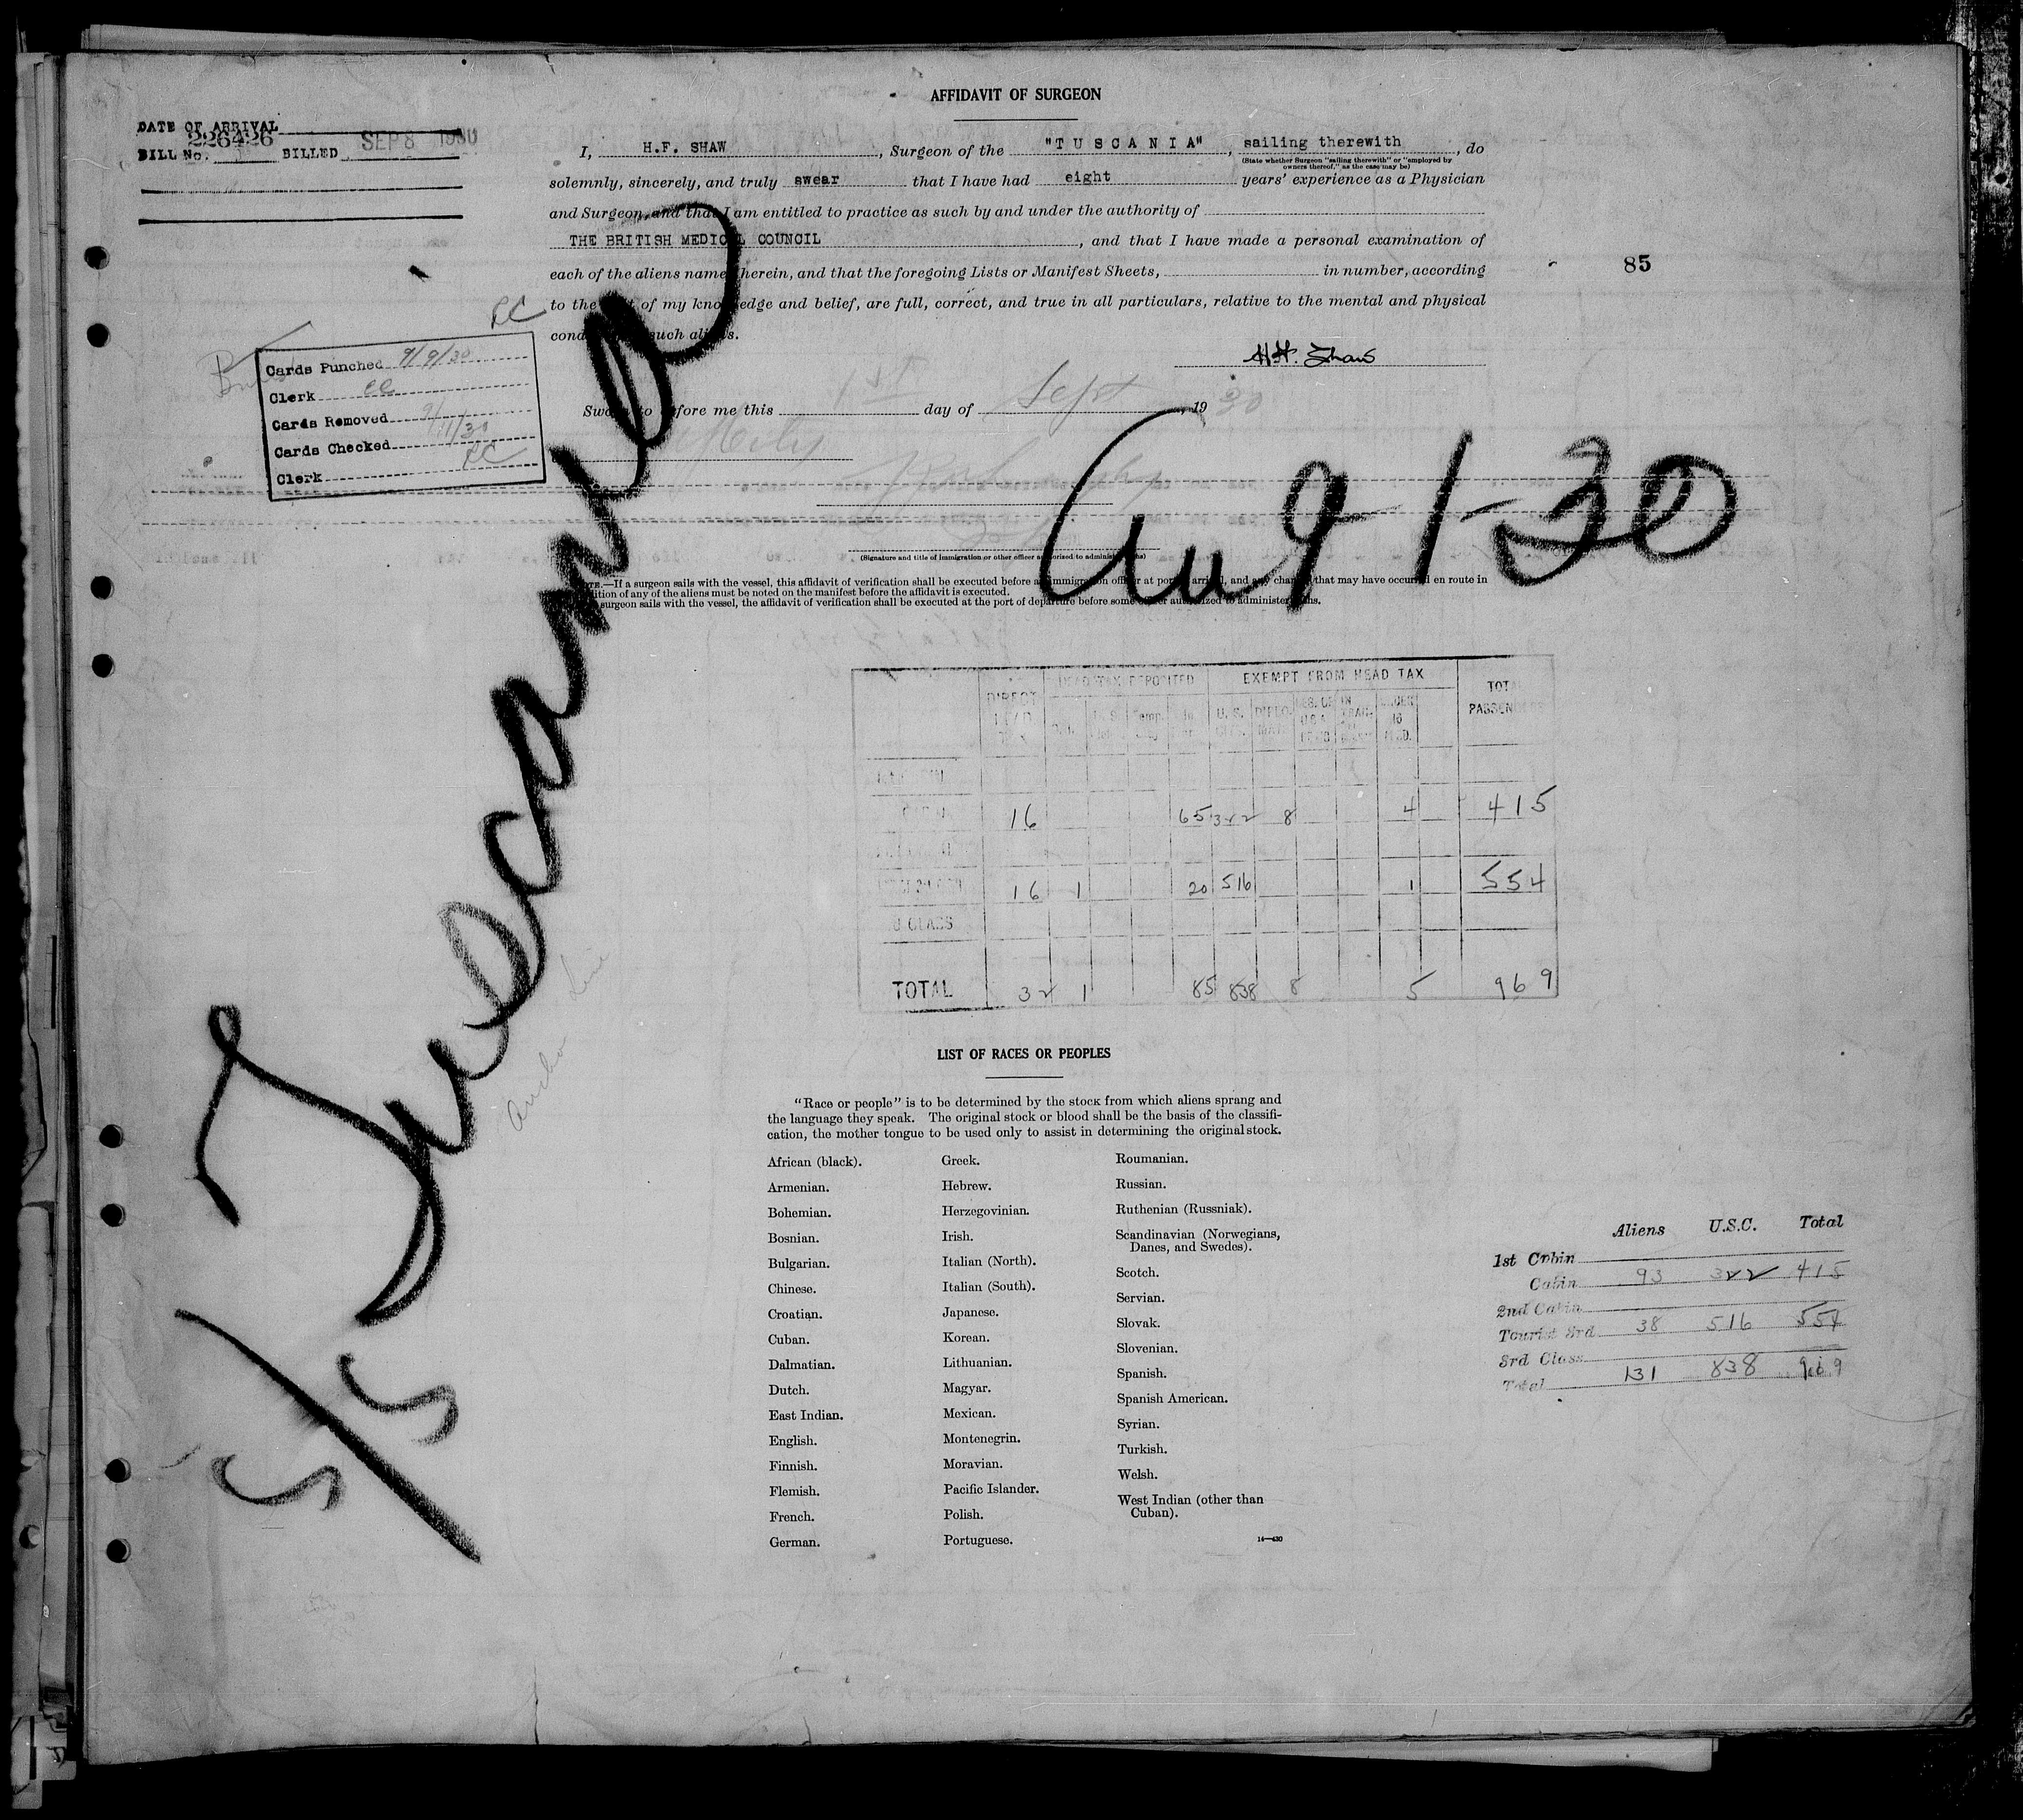 AFFIDAVIT OF SURGEON
DATE OF ARRIVAL
226426
BILL No. BILLED SEP 8 1930
I, H.F. SHAW, Surgeon of the "TUSCANIA", sailing therewith, do
(State whether Surgeon "sailing therewith" or "employed by
owners thereof," as the case may be)
solemnly, sincerely, and truly swear that I have had eight years' experience as a Physician
and Surgeon, and that I am entitled to practice as such by and under the authority of
THE BRITISH MEDICAL COUNCIL, and that I have made a personal examination of
each of the aliens named herein, and that the foregoing Lists or Manifest Sheets, in number, according
85
to the best of my knowledge and belief, are full, correct, and true in all particulars, relative to the mental and physical
condition of such aliens.
H.F. Shaw
Cards Punched 9/9/30
Clerk
Cards Removed
Cards Checked 9/11/30
Clerk
Sworn to before me this 1st day of Sept, 1930
Arr 9-1-30
S/S Tuscania
Anchor Line
(Signature and title of immigration or other officer authorized to administer oaths)
NOTE.—If a surgeon sails with the vessel, this affidavit of verification shall be executed before an immigration officer at port of arrival, and any changes that may have occurred en route in
condition of any of the aliens must be noted on the manifest before the affidavit is executed.
surgeon sails with the vessel, the affidavit of verification shall be executed at the port of departure before some officer authorized to administer oaths.
HEAD TAX DEPOSITED EXEMPT FROM HEAD TAX
DIRECT HEAD TAX U.S. DIPLO. IN TRAN. UNDER 16 TOTAL PASSENGERS
16 65 322 8 4 415
16 1 20 516 1 554
3 CLASS
TOTAL 32 1 85 838 8 5 969
LIST OF RACES OR PEOPLES
"Race or people" is to be determined by the stock from which aliens sprang and
the language they speak. The original stock or blood shall be the basis of the classifi-
cation, the mother tongue to be used only to assist in determining the original stock.
African (black).
Armenian.
Bohemian.
Bosnian.
Bulgarian.
Chinese.
Croatian.
Cuban.
Dalmatian.
Dutch.
East Indian.
English.
Finnish.
Flemish.
French.
German.
Greek.
Hebrew.
Herzegovinian.
Irish.
Italian (North).
Italian (South).
Japanese.
Korean.
Lithuanian.
Magyar.
Mexican.
Montenegrin.
Moravian.
Pacific Islander.
Polish.
Portuguese.
Roumanian.
Russian.
Ruthenian (Russniak).
Scandinavian (Norwegians,
Danes, and Swedes).
Scotch.
Servian.
Slovak.
Slovenian.
Spanish.
Spanish American.
Syrian.
Turkish.
Welsh.
West Indian (other than
Cuban).
14—430
Aliens U.S.C. Total
1st Cabin
Cabin 93 322 415
2nd Cabin
Tourist 3rd 38 516 554
3rd Class
Total 131 838 969